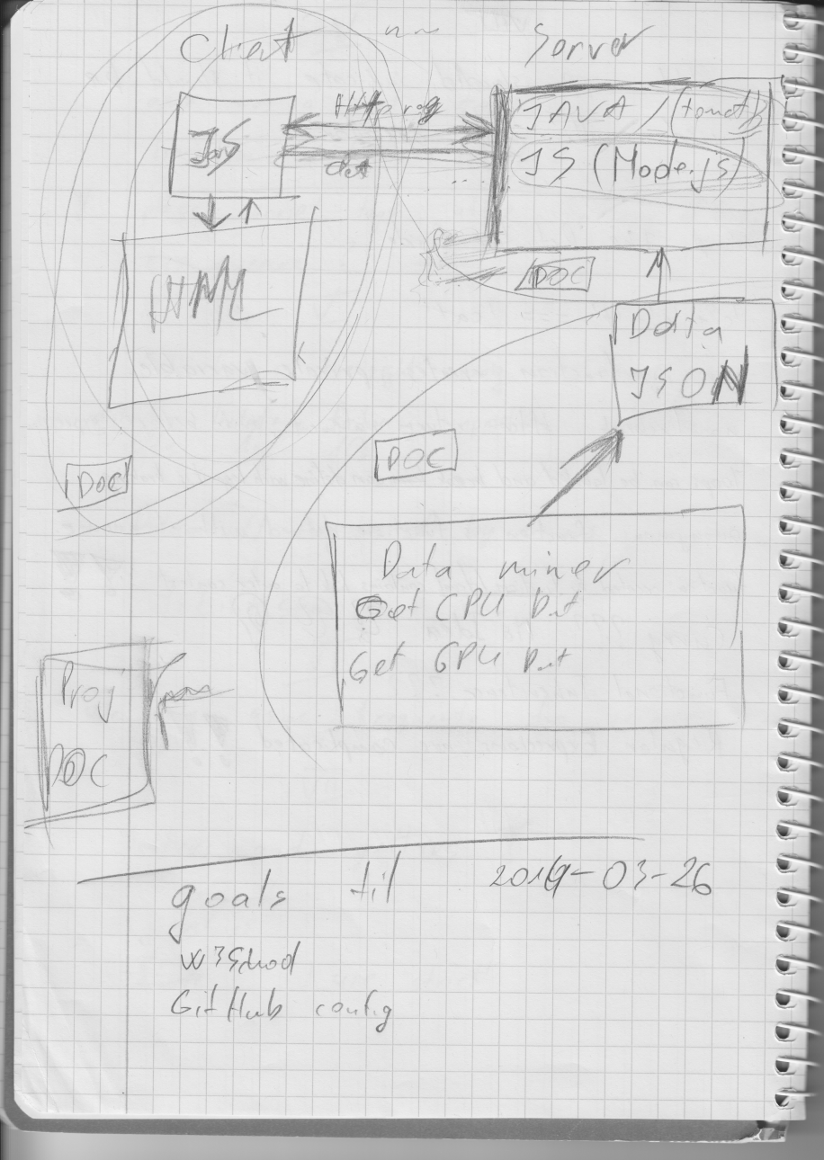 Client
Server
JS
Http req
dat
JAVA / (tomcat)
JS (Node.js)
HTML
DOC
Data
JSON
DOC
DOC
Data miner
Get CPU Dat
Get GPU Dat
Proj
DOC
goals til 2019-03-26
W3School
GitHub config